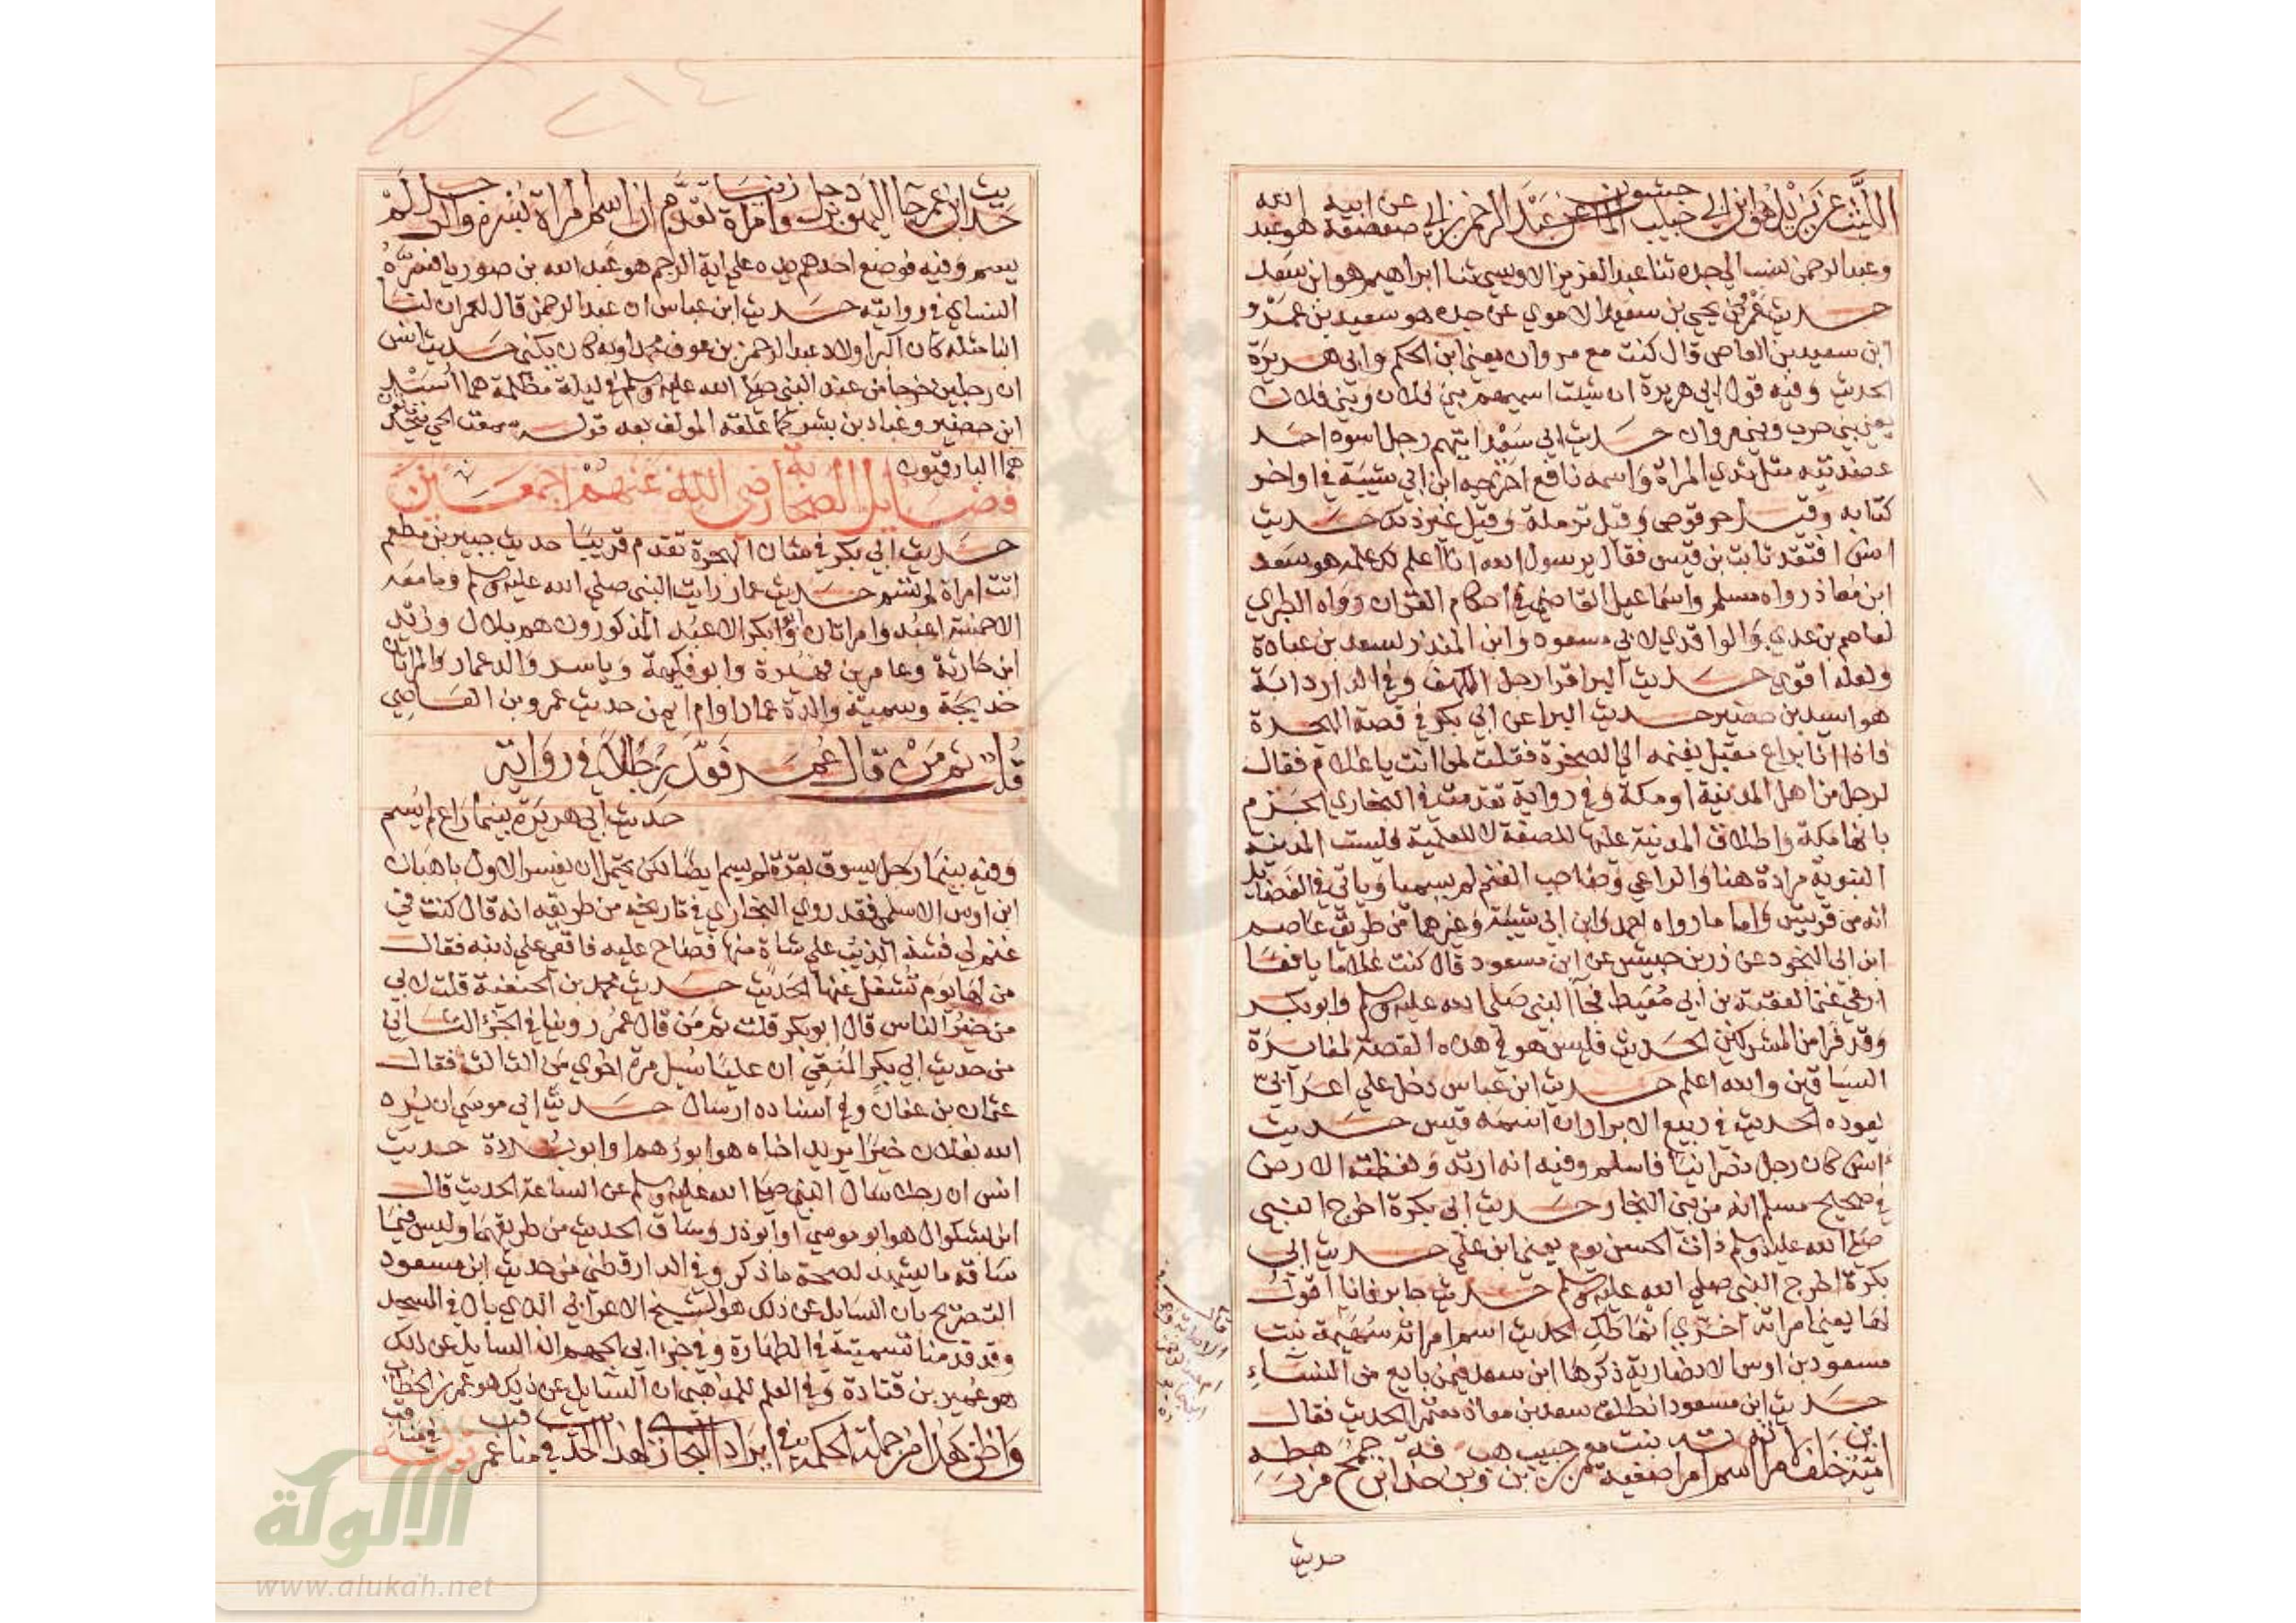 الليث عن يزيد هو ابن ابي حبيب الماجشون عن عبد الرحمن بن ابي صعصعة عن ابيه هو عبد الله
وعبد الرحمن لنسب الي جده ثنا عبد العزيز الاويسي ثنا ابراهيم هو ابن سعد
حديث عمرو بن يحيي بن سعيد الاموي عن جده هو سعيد بن عمرو
ابن سعيد بن العاص قال كنت مع مروان يعني ابن الحكم وابي هريرة
الحديث وفيه قول ابي هريرة ان شئت اسميهم بني فلان وبني فلان
يعني بني حرب وبني مروان حديث ابي سعيد ايتهم رجل اسود احد
عضديه مثل ثدي المراة واسمه نافع اخرجه ابن ابي شيبة في اواخر
كتابه وقيل حرقوص وقيل ترملة وقيل غير ذلك حديث
انس افتقد ثابت بن قيس فقال يرسول الله انا اعلم لك علمه هو سعد
ابن معاذ رواه مسلم واسماعيل القاضي في احكام القران ورواه الطبري
لعاصم بن عدي والواقدي لابي مسعود وابن المنذر لسعد بن عبادة
ولعله اقوي حديث البرا قرا رجل الكهف وفي الدار دابة
هو اسيد بن حضير حديث البرا عن ابي بكر في قصة الهجرة
فاذا انا براع مقبل بغنمه الي الصخرة فقلت لمن انت يا غلام فقال
لرجل من اهل المدينة او مكة وفي رواية تقدمت في البخاري الجزم
بانها مكة واطلاق المدينة عليها للصفة لا للعلمية فليست المدينة
النبوية مرادة هنا والراعي وصاحب الغنم لم يسميا وياتي في الفضايل
انه من قريش واما ما رواه احمد وابن ابي شيبة وغيرهما من طريق عاصم
ابن ابي النجود عن زر بن حبيش عن ابن مسعود قال كنت غلاما يافعا
ارعي غنما لعقبة بن ابي معيط فجا النبي صلي الله عليه وسلم وابو بكر
وقد فرا من المشركين الحديث فليس هو في هذه القصة لمغايرة
السياقين والله اعلم حديث ابن عباس دخل علي اعرابي
يعوده الحديث في ربيع الابرار ان اسمه قيس حديث
انس كان رجل نصرانيا فاسلم وفيه انه ارتد ولفظته الارض
في صحيح مسلم انه من بني النجار حديث ابي بكرة اخرج النبي
صلي الله عليه وسلم ذات الحسن يوم يعني ابن علي حديث ابي
بكرة اخرج النبي صلي الله عليه وسلم حديث جابر فانا اقول
لها يعني امراته اخري انماطك الحديث اسم امراته سهيمة بنت
مسعود بن اوس الانصارية ذكرها ابن سعد فيمن بايع من النساء
حديث ابن مسعود انطلق سعد بن معاذ معتمرا الحديث فقال
امية بن خلف لامراته اسم امراته صفية بنت معمر بن حبيب بن وهب بن حذافة ابن جمح من رهطه
حديث
حديث ابن عمر جا اليهود برجل وامراة زنيا تقدم ان اسم المراة بسرة والرجل لم
يسم وفيه فوضع احدهم يده علي اية الرجم هو عبد الله بن صوريا فسره
النساي في روايته حديث ابن عباس ان عبد الرحمن قال لعمر ان لنا
ابنا مثله كان اكبر اولاد عبد الرحمن بن عوف محمد اوبه كان يكني حديث انس
ان رجلين خرجا من عند النبي صلي الله عليه وسلم في ليلة مظلمة هما اسيد
ابن حضير وعباد بن بشر كما علقه المولف بعد قوله سمعت الحي يتحدثون
هم البارقيون
فضايل الصحابة رضي الله عنهم اجمعين
حديث ابي بكر في شان الهجرة تقدم قريبا حديث جبير بن مطعم
اتت امراة لم تسم حديث عمار رايت النبي صلي الله عليه وسلم وما معه
الا خمسة اعبد وامراتان وابو بكر الاعبد المذكورون هم بلال وزيد
ابن حارثة وعامر بن فهيرة وابو فكيهة وياسر والد عمار والمراتان
خديجة وسمية والدة عمار او ام ايمن حديث عمرو بن العاصي
قلت ثم من قال عمر فعد رجالا في رواية
حديث ابي هريرة بينما راع لم يسم
وفيه بينما رجل يسوق بقرة لم يسم ايضا لكن يحتمل ان يفسر الاول باهبان
ابن اوس الاسلمي فقد روي البخاري في تاريخه من طريقه انه قال كنت في
غنم لي فشد الذيب علي شاة منها فصاح عليه فاقعي علي ذنبه فقال
من لها يوم تشتغل عنها الحديث حديث محمد بن الحنفية قلت لابي
من خير الناس قال ابو بكر قلت ثم من قال عمر روينا في الجزء الثاني
من حديث ابي بكر المنقي ان عليا سيل مرة اخري من الثالث فقال
عثمان بن عفان وفي اسناده ارسال حديث ابي موسي ان يرد
الله بفلان خيرا يريد اخاه هو ابو رهم او ابو بردة حديث
انس ان رجلا سال النبي صلي الله عليه وسلم عن الساعة الحديث قال
ابن بشكوال هو ابو موسي او ابو ذر وساق الحديث من طريقهما وليس فيما
ساقه ما يشهد لصحة ما ذكر وفي الدارقطني من حديث ابن مسعود
التصريح بان السايل عن ذلك هو الشيخ الاعرابي الذي بال في المسجد
وقد قدمنا تسميته في الطهارة وفي جزا ابي الجهم ان السايل عن ذلك
هو عمير بن قتادة وفي العلم للمذهبي ان السايل عن ذلك هو عمر بن الخطاب
واظن هذا من جملة الحكمة في ايراد البخاري هذا الحديث في مناقب عمر
قوله
الالوكة
www.alukah.net